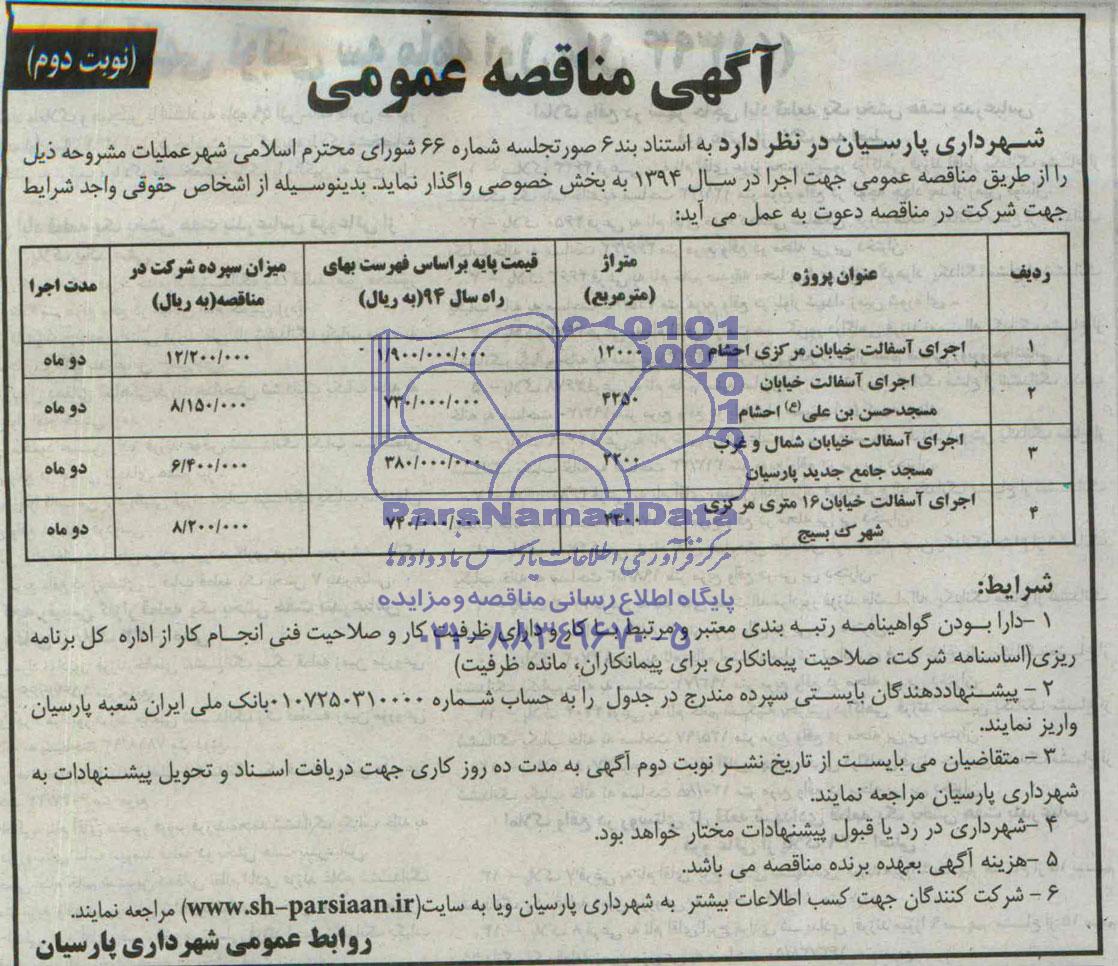 (نوبت دوم)
آگهی مناقصه عمومی
شهرداری پارسیان در نظر دارد به استناد بند۶ صورتجلسه شماره ۶۶ شورای محترم اسلامی شهرعملیات مشروحه ذیل
را از طریق مناقصه عمومی جهت اجرا در سال ۱۳۹۴ به بخش خصوصی واگذار نماید. بدینوسیله از اشخاص حقوقی واجد شرایط
جهت شرکت در مناقصه دعوت به عمل می آید:
ردیف عنوان پروژه متراژ (مترمربع) قیمت پایه براساس فهرست بهای راه سال ۹۴(به ریال) میزان سپرده شرکت در مناقصه(به ریال) مدت اجرا
۱ اجرای آسفالت خیابان مرکزی احشام ۱۲۰۰۰ ۱/۹۰۰/۰۰۰/۰۰۰ ۱۲/۲۰۰/۰۰۰ دو ماه
۲ اجرای آسفالت خیابان مسجدحسن بن علی (ع) احشام ۴۲۵۰ ۷۳۰/۰۰۰/۰۰۰ ۸/۱۵۰/۰۰۰ دو ماه
۳ اجرای آسفالت خیابان شمال و غرب مسجد جامع جدید پارسیان ۲۲۰۰ ۳۸۰/۰۰۰/۰۰۰ ۶/۴۰۰/۰۰۰ دو ماه
۴ اجرای آسفالت خیابان۱۶ متری مرکزی شهرک بسیج ۷۴۰/۰۰۰/۰۰۰ ۸/۲۰۰/۰۰۰ دو ماه
ParsNamadData
مرکز فرآوری اطلاعات پارس نماد داده ها
پایگاه اطلاع رسانی مناقصه و مزایده
۰۲۱-۸۸۳۴۹۶۷۰-۵
شرایط:
۱ -دارا بودن گواهینامه رتبه بندی معتبر و مرتبط با کار و دارای ظرفیت کار و صلاحیت فنی انجام کار از اداره کل برنامه
ریزی(اساسنامه شرکت، صلاحیت پیمانکاری برای پیمانکاران، مانده ظرفیت)
۲ - پیشنهاددهندگان بایستی سپرده مندرج در جدول را به حساب شماره ۰۱۰۷۲۵۰۳۱۰۰۰۰بانک ملی ایران شعبه پارسیان
واریز نمایند.
۳ - متقاضیان می بایست از تاریخ نشر نوبت دوم آگهی به مدت ده روز کاری جهت دریافت اسناد و تحویل پیشنهادات به
شهرداری پارسیان مراجعه نمایند.
۴ -شهرداری در رد یا قبول پیشنهادات مختار خواهد بود.
۵ -هزینه آگهی بعهده برنده مناقصه می باشد.
۶ - شرکت کنندگان جهت کسب اطلاعات بیشتر به شهرداری پارسیان ویا به سایت(www.sh-parsiaan.ir) مراجعه نمایند.
روابط عمومی شهرداری پارسیان